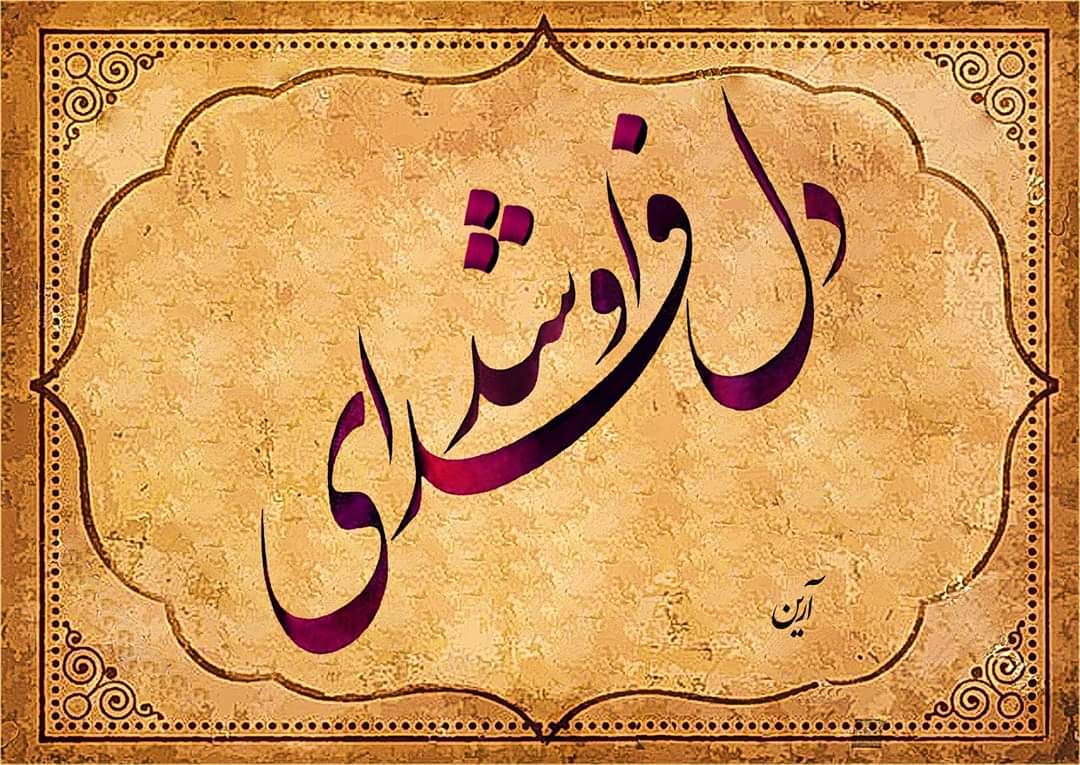 دل فدای او شد
آرین